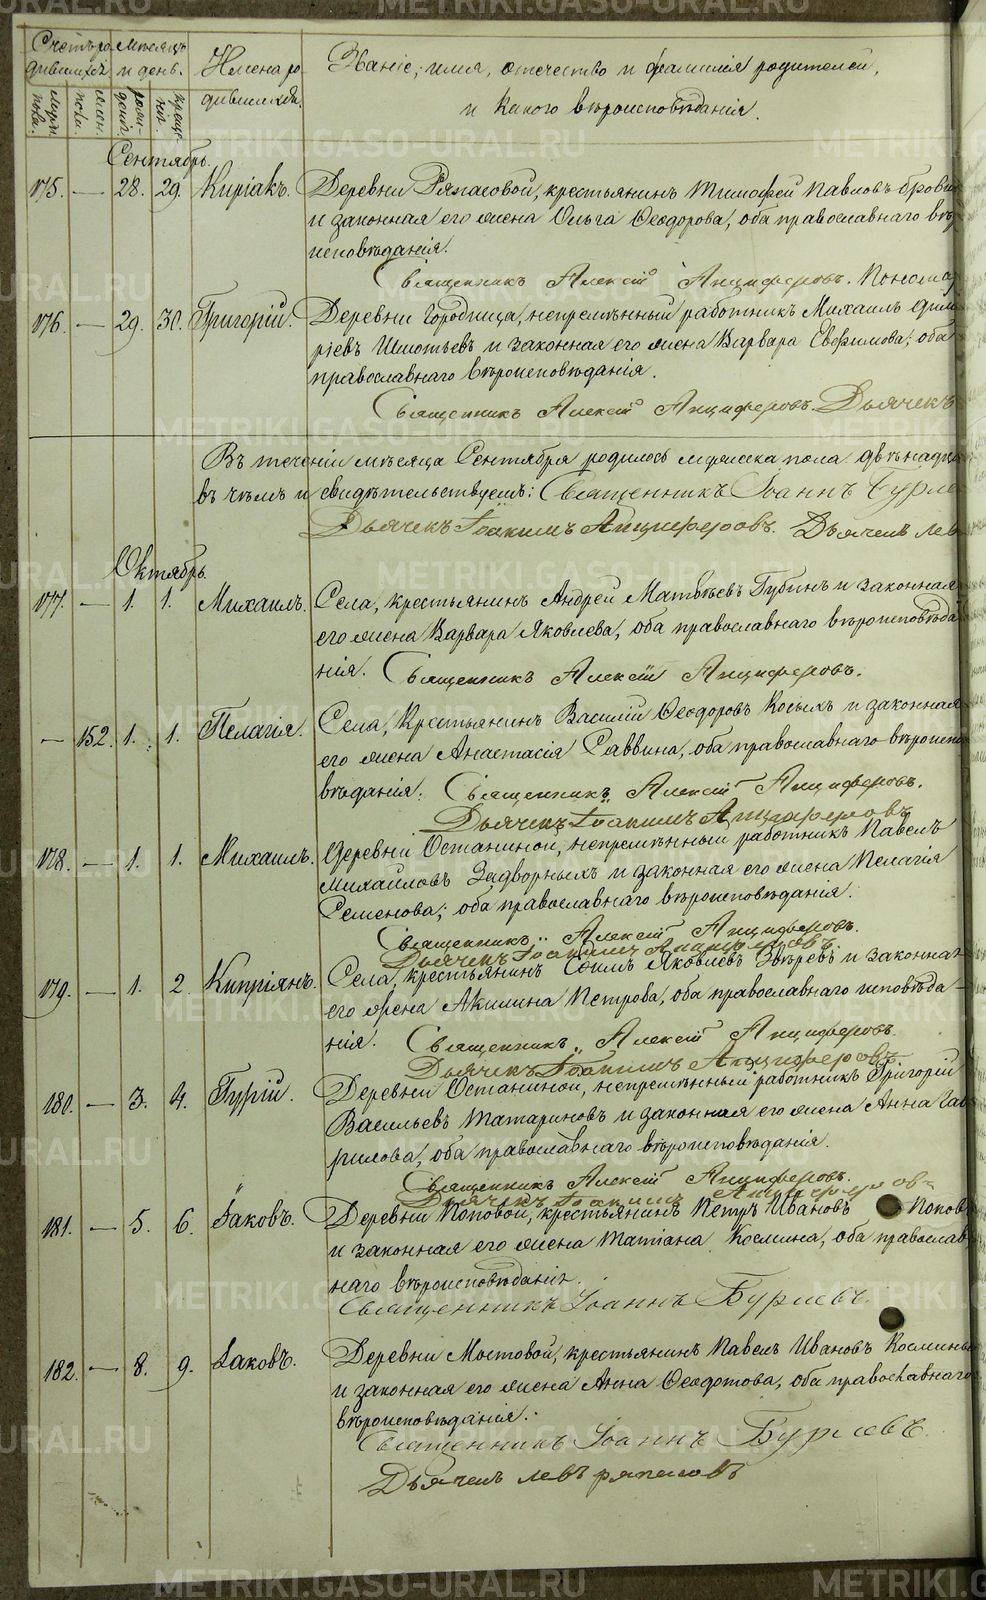 Счетъ ро
дившихся
Мѣсяцъ
и день.
Имена ро
дившихся.
Званіе, имя, отечество и фамилія родителей,
и какого вѣроисповѣданія.
муже
пола.
жен.
пола.
рож
денія.
креще
нія.
Сентябрь.
175. — 28. 29. Киріакъ. Деревни Ряпасовой, крестьянинъ Тимофей Павловъ
и законная его жена Ольга Ѳеодорова, оба православнаго вѣро
исповѣданія.
Священникъ Алексій Анциферовъ. Понома
176. — 29. 30. Григорій. Деревни Городища, непремѣнный работникъ Михаилъ Дмит
ріевъ Шмотьевъ и законная его жена Варвара Евфимова, оба
православнаго вѣроисповѣданія.
Священникъ Алексій Анциферовъ. Дьячекъ
Въ теченіи мѣсяца Сентября родилось мужеска пола двѣнадца
въ чемъ и свидѣтельствуемъ: Священникъ Іоаннъ Бурле
Дьячекъ Іоакимъ Анциферовъ. Дьячекъ Лев
Октябрь.
177. — 1. 1. Михаилъ. Села, крестьянинъ Андрей Матвѣевъ Губинъ и законная
его жена Варвара Яковлева, оба православнаго вѣроисповѣда
нія. Священникъ Алексій Анциферовъ.
— 152. 1. 1. Пелагія. Села, крестьянинъ Василій Ѳеодоровъ Косыхъ и законная
его жена Анастасія Саввина, оба православнаго вѣроиспо
вѣданія. Священникъ Алексій Анциферовъ.
Дьячекъ Іоакимъ Анциферовъ
178. — 1. 1. Михаилъ. Деревни Останиной, непремѣнный работникъ Павелъ
Михайловъ Задворныхъ и законная его жена Пелагія
Семенова, оба православнаго вѣроисповѣданія.
Священникъ Алексій Анциферовъ.
Дьячекъ Іоакимъ Анциферовъ.
179. — 1. 2. Кипріянъ. Села, крестьянинъ Яковлевъ Звѣревъ и законная
его жена Акилина Петрова, оба православнаго исповѣда
нія. Священникъ Алексій Анциферовъ.
Дьячекъ Іоакимъ Анциферовъ
180. — 3. 4. Гурій. Деревни Останиной, непремѣнный работникъ Григорій
Васильевъ Татариновъ и законная его жена Анна Гав
рилова, оба православнаго вѣроисповѣданія.
Священникъ Алексій Анциферовъ.
Дьячекъ Іоакимъ Анциферовъ
181. — 5. 6. Іаковъ. Деревни Поповой, крестьянинъ Петръ Ивановъ Попов
и законная его жена Татіана Космина, оба православ
наго вѣроисповѣданія.
Священникъ Іоаннъ Бурлевъ.
182. — 8. 9. Іаковъ. Деревни Мостовой, крестьянинъ Павелъ Ивановъ Косминых
и законная его жена Анна Ѳеодотова, оба православнаго
вѣроисповѣданія.
Священникъ Іоаннъ Бурлевъ.
Дьячекъ Левъ Ряпасовъ
METRIKI.GASO-URAL.RU